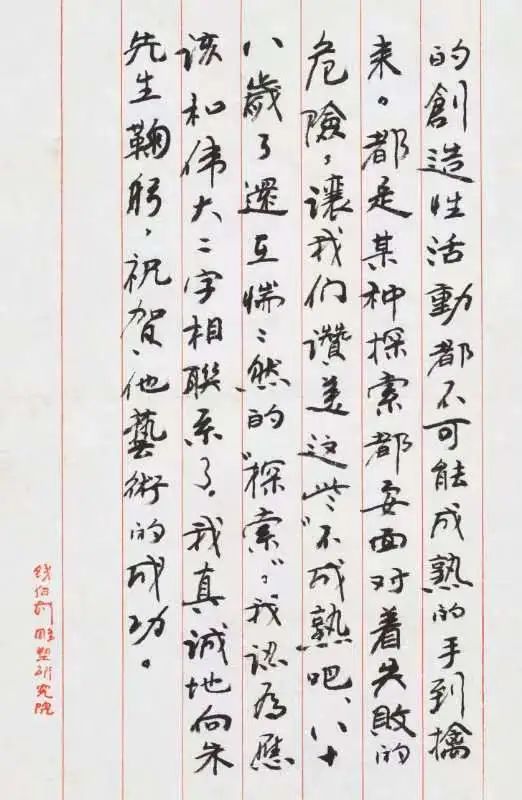 的創造性活動都不可能成熟的手到擒
来。都是某种探索都要面对着失敗的
危險，讓我们讚美这些“不成熟吧、八十
八歲了還在惴〻然的“探索”，我認为應
该和伟大二字相聯系了。我真誠地向朱
先生鞠躬，祝賀、他藝術的成功。
钱绍武雕塑研究院